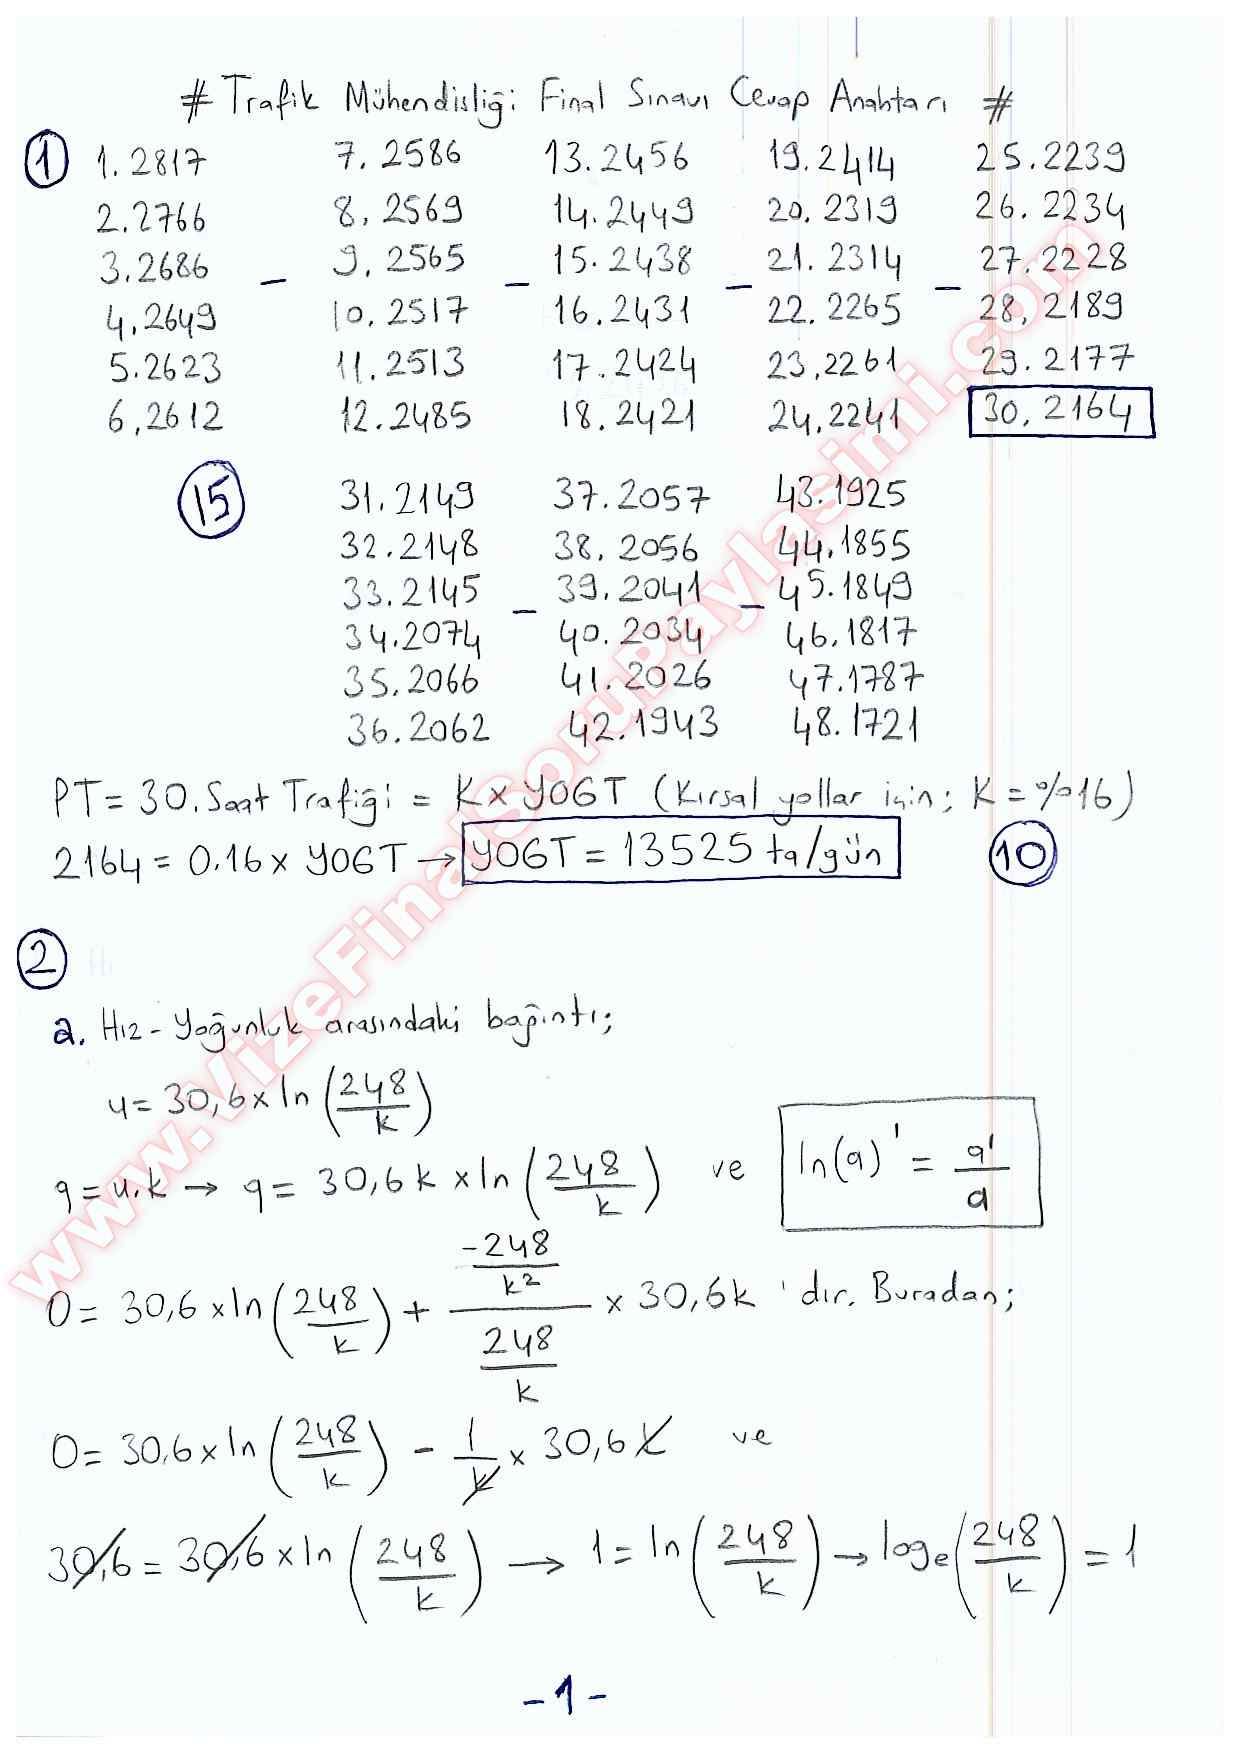 # Trafik Mühendisliği Final Sınavı Cevap Anahtarı #
1 1.2817 7.2586 13.2456 19.2414 25.2239
2.2766 8.2569 14.2449 20.2319 26.2234
3.2686 - 9.2565 - 15.2438 - 21.2314 - 27.2228
4.2649 10.2517 16.2431 22.2265 28.2189
5.2623 11.2513 17.2424 23.2261 29.2177
6.2612 12.2485 18.2421 24.2241 30.2164
15 31.2149 37.2057 43.1925
32.2148 38.2056 44.1855
33.2145 - 39.2041 - 45.1849
34.2074 40.2034 46.1817
35.2066 41.2026 47.1787
36.2062 42.1943 48.1721
PT = 30. Saat Trafiği = K x YOGT (Kırsal yollar için; K = %16)
2164 = 0.16 x YOGT → YOGT = 13525 ta/gün 10
2
a. Hız - Yoğunluk arasındaki bağıntı;
u = 30,6 x ln (248/k)
q = u.k → q = 30,6k x ln (248/k) ve ln(a)' = a'/a
0 = 30,6 x ln (248/k) + (-248/k²)/(248/k) x 30,6k 'dır. Buradan;
0 = 30,6 x ln (248/k) - 1/k x 30,6k ve
30,6 = 30,6 x ln (248/k) → 1 = ln (248/k) → logₑ (248/k) = 1
- 1 -
www.VizeFinalSoruPaylasimi.com